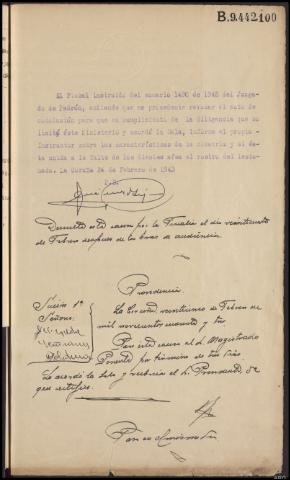 B.9.442.100
El Fiscal instruído del sumario 1490 de 1942 del Juzga-
do de Padrón, entiende que es procedente revocar el auto de
conclusión para que en cumplimiento de la diligencia que so-
licitó éste Ministerio y acordó la Sala, informe el propio
Instructor sobre las características de la cicatriz y si és-
ta unida a la falta de los dientes afea el rostro del lesio-
nado. La Coruña 24 de Febrero de 1943
Devuelta esta causa por la Fiscalía el día veinticuatro
de Febrero después de las horas de audiencia.
Providencia
Sección 1ª
Señores
La Coruña veinticinco de Febrero de
mil novecientos cuarenta y tres
Pase esta causa al Sr. Magistrado
Ponente por término de tres días
Lo acordó la Sala y rubrica el Sr. Presidente, de
que certifico.